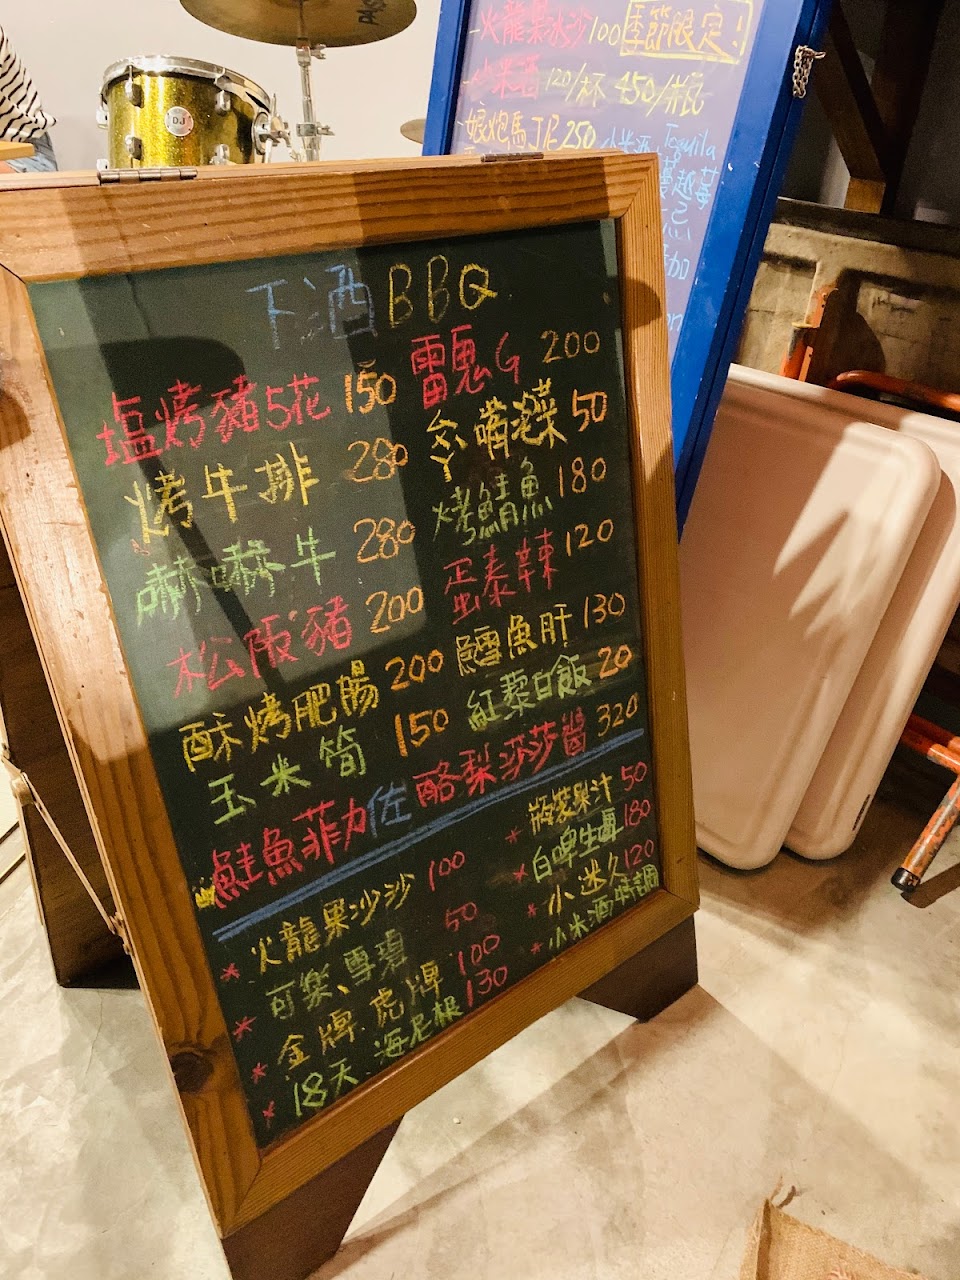 -火龍果冰沙100 季節限定!
-小米酒 120/杯 450/瓶
-娘炮馬丁尼250 小米酒 Tequila
蔓越莓
加
DJ
下酒BBQ
塩烤豬5花 150 雷鬼G 200
烤牛排 280 爹嘴泡菜 50
嚇嚇牛 280 烤鯖魚 180
松阪豬 200 蛋泰辣 120
酥烤肥腸 200 鱈魚肝 130
玉米筒 150 紅藜白飯 20
鮭魚菲力佐酪梨莎莎醬 320
* 火龍果沙沙 100 * 瓶裝果汁 50
* 可樂、雪碧 50 * 白啤生 180
* 金牌.虎牌 100 * 小迷久 120
* 18天.海尼根 130 * 小米酒特調